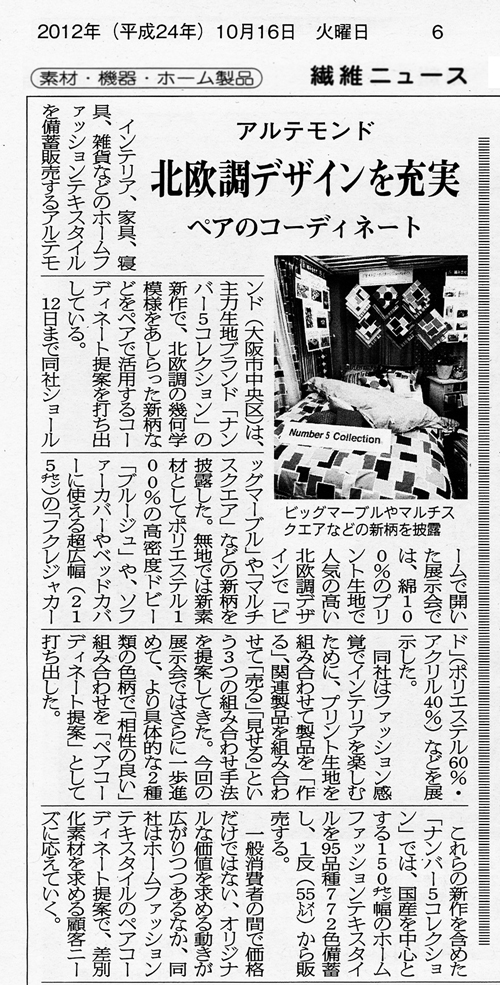 2012年（平成24年）10月16日　火曜日　6
素材・機器・ホーム製品
繊維ニュース
アルテモンド
北欧調デザインを充実
ペアのコーディネート
インテリア、家具、寝
具、雑貨などのホームフ
ァッションテキスタイル
を備蓄販売するアルテモ
ンド（大阪市中央区）は、
主力生地ブランド「ナン
バー5コレクション」の
新作で、北欧調の幾何学
模様をあしらった新柄な
どをペアで活用するコー
ディネート提案を打ち出
している。
12日まで同社ショール
Number 5 Collection
ビッグマーブルやマルチス
クエアなどの新柄を披露
ームで開い
た展示会で
は、綿10
0％のプリ
ント生地で
人気の高い
北欧調デザ
インで「ビ
ッグマーブル」や「マルチ
スクエア」などの新柄を
披露した。無地では新素
材としてポリエステル1
00％の高密度ドビー
「ブルージュ」や、ソフ
ァーカバーやベッドカバ
ーに使える超広幅（21
5㌢）の「フクレジャカー
ド」（ポリエステル60％・
アクリル40％）などを展
示した。
同社はファッション感
覚でインテリアを楽しむ
ために、プリント生地を
組み合わせて製品を「作
る」、関連製品を組み合わ
せて「売る」「見せる」とい
う3つの組み合わせ手法
を提案してきた。今回の
展示会ではさらに一歩進
めて、より具体的な2種
類の色柄で「相性の良い」
組み合わせを「ペアコー
ディネート提案」として
打ち出した。
これらの新作を含めた
「ナンバー5コレクショ
ン」では、国産を中心と
する150㌢幅のホーム
ファッションテキスタイ
ルを95品種772色備蓄
し、1反（55㍍）から販
売する。
一般消費者の間で価格
だけではない、オリジナ
ルな価値を求める動きが
広がりつつあるなか、同
社はホームファッション
テキスタイルのペアコー
ディネート提案で、差別
化素材を求める顧客ニー
ズに応えていく。